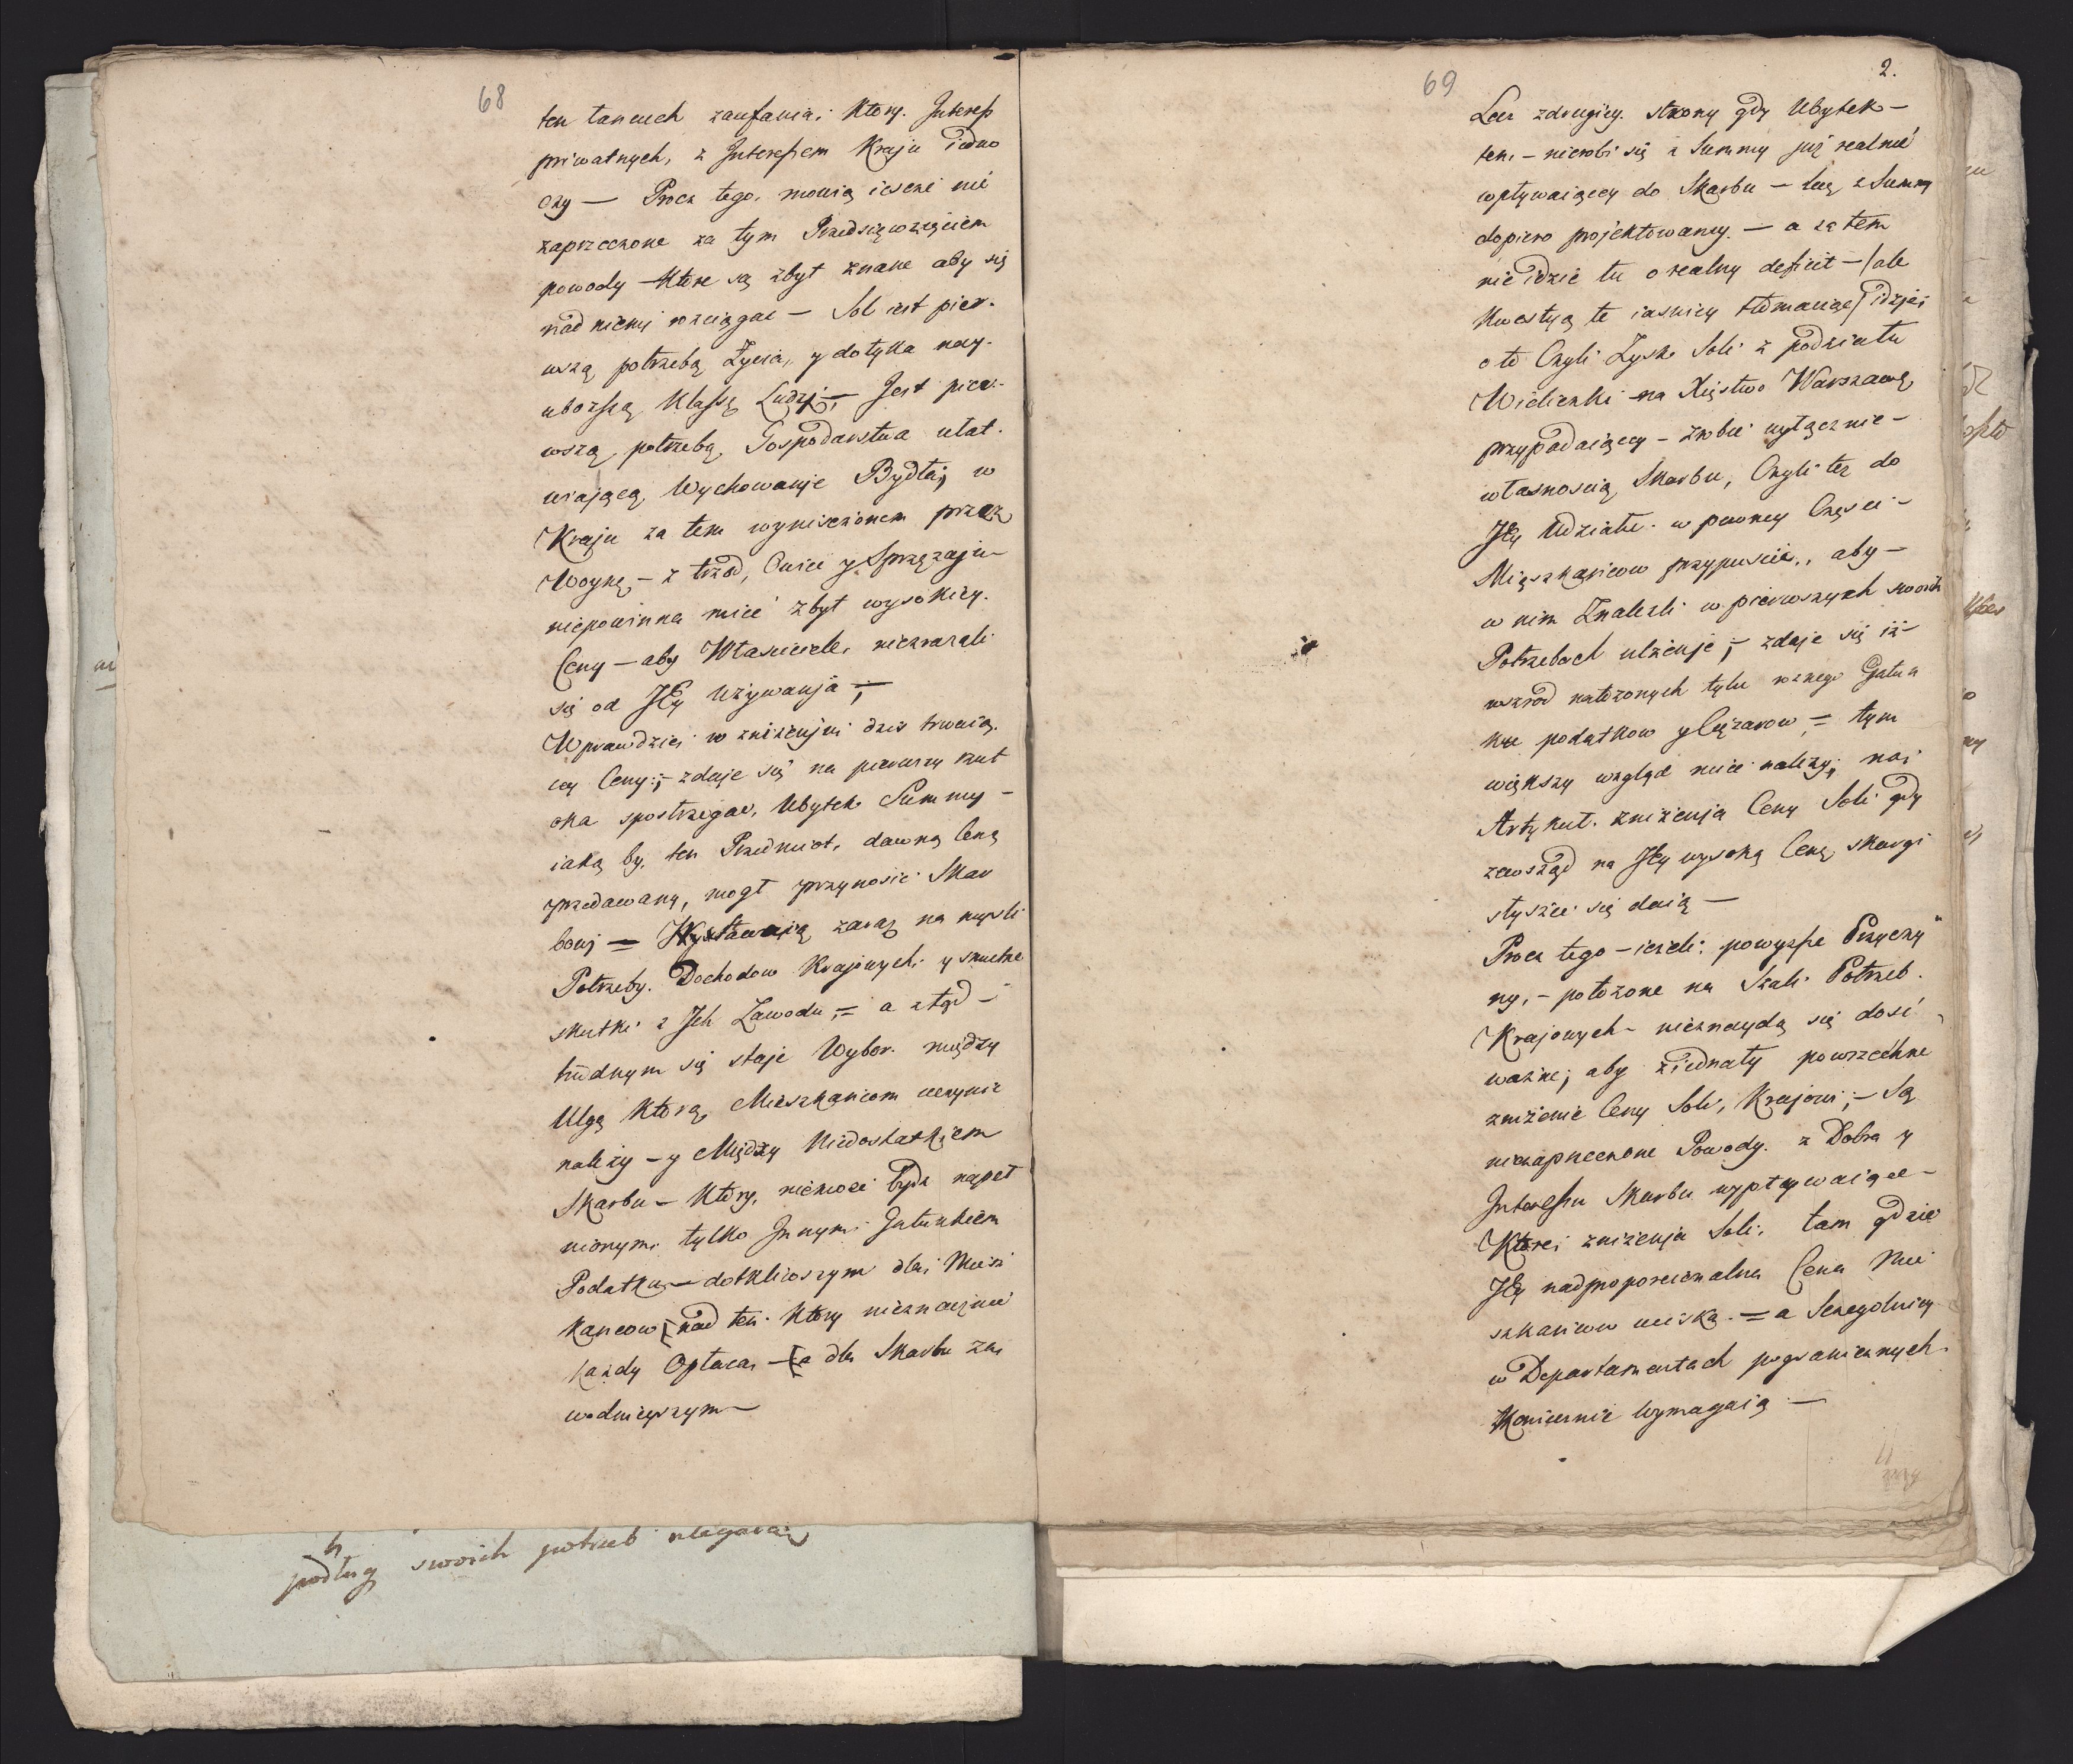 68
ten łancuch zaufania, Ktory. Interess
priwatnych, z Interessem Kraju iedno
czy — Procz tego, mowią ieszcze nie
zaprzeczone za tym Przedsięwzięciem
powody — Ktore są zbyt znane aby się
nad niemi rozciągac — Sol iest pier-
wszą potrzebą Życia, y dotyka nay-
uboższą Klassę Ludzi; — Jest pier-
wszą potrzebą Gospodarstwa ułat-
wiającą Wychowanje Bydła; w
Kraju za tem wyniszczonem przez
Woynę, — z trzod, Owiec y Sprzęzaju —
niepowinna mieć zbyt wysokiey.
Ceny — aby Własciciele, niezrazali
się od JEy Używanja —;
Wprawdzie; w zniżenjui dzis trwaią-
cey Ceny; — zdaje się na pierwszy rzut
oka spostrzegac, Ubytek Summy —
iaką by, ten Przedmiot, dawną Ceną
przedawany, mogł przynosic Skar
bowj — Wystawaią zaraz na mysli
Potrzeby. Dochodow Krajowych, y smutne
skutki z Jch Zawodu; = a ztąd —
trudnym się staje Wybor. między
Ulgą Ktorą, Mieszkancom uczynic
należy — y Między Niedostatkiem
Skarbu — Ktory, niemoze bydz napeł
nionym, tylko Jnnym Gatunkiem
Podatku — dotkliwszym dla Miesz
kancow [nad ten. Ktory nieznacznie
każdy Opłaca, — [a dla Skarbu za
wodnieyszym —
podług swoich potrzeb
69
2.
Lecz zdrugiey. strony gdy Ubytek —
ten, — nierobi się z Summy już realnie
wpływaiącey do Skarbu — lecz z Summy
dopiero projektowaney. — a zatem
nie idzie tu o realny deficit — /ale
Kwestyą te iasniey tłomacząc/ idzie;
o to Czyli Zysk Soli z podziału
Wieliczki na Xięstwo Warszaws.
przypadaiącey — zrobic wyłącznie —
własnoscią Skarbu, Czyli też do
JEy Udziału. w pewney Częsci —
Mięszkancow przypuscic., aby —
w nim Znalezli w pierwszych swoich
Potrzebach ulżenje; — zdaje się iż —
wsrzod nałożonych tylu roznego Gatun
ku podatkow y Ciężarow, = tym
większy wzgląd miec należy; na;
Artykuł. zniżenja Ceny Soli gdy
zewsząd na JEy wysoką Cenę, skargi
słyszec się daią —
Procz tego — ieżeli: powyzsze Przyczy
ny, — położone na Szali Potrzeb.
Krajowych — nieznaydą się dosić
ważne; aby ziednały powrzechne
zniżenie Ceny Soli, Krajowi; — Są
niezaprzeczone Powody. z Dobra y
Interessu Skarbu wypływaiące —
Ktorei zniżenja Soli, tam gdzie
JEy nadproporcionalna Cena Mie
szkancow uciska. = a Szczegolniey
w Departamentach pogranicznych.
Koniecznie Wymagaią —